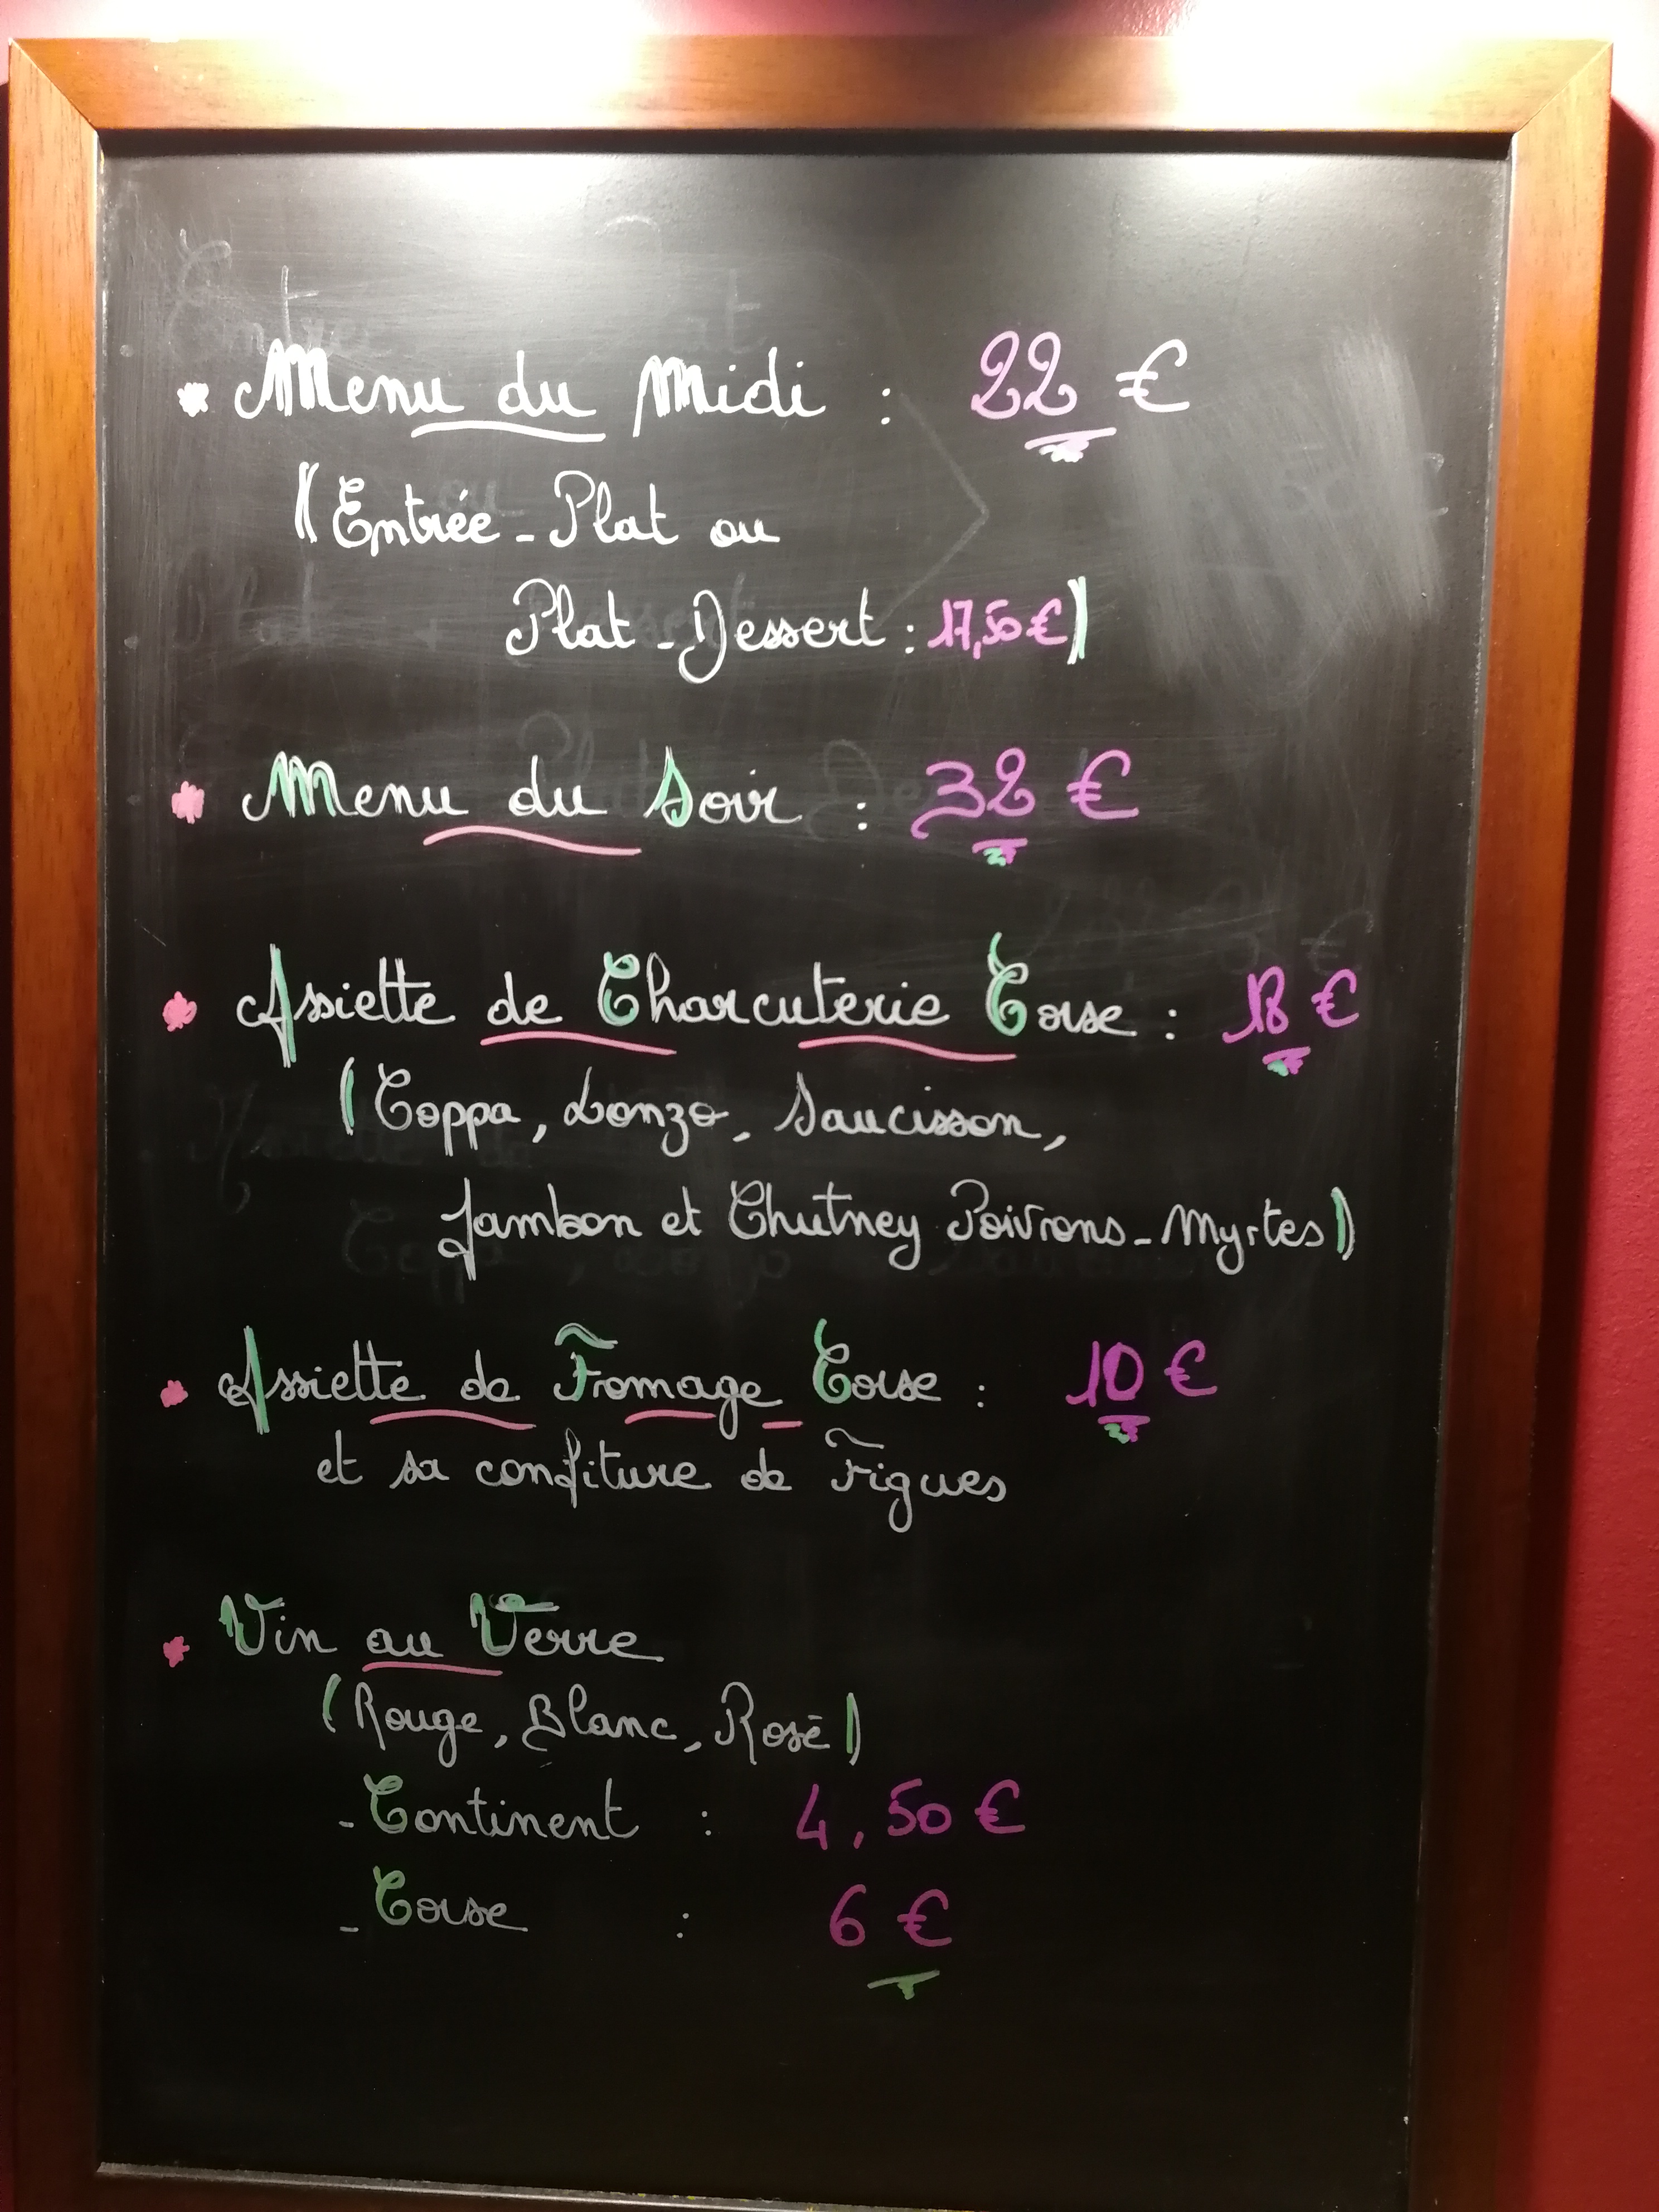 * Menu du Midi : 22 €
(Entrée - Plat ou
Plat - Dessert : 17,50 €)
* Menu du Soir : 32 €
* Assiette de Charcuterie Corse : 18 €
(Coppa, Lonzo, Saucisson,
Jambon et Chutney Poivrons - Myrtes)
* Assiette de Fromage Corse : 10 €
et sa confiture de Figues
* Vin au Verre
(Rouge, Blanc, Rosé)
- Continent : 4,50 €
- Corse : 6 €